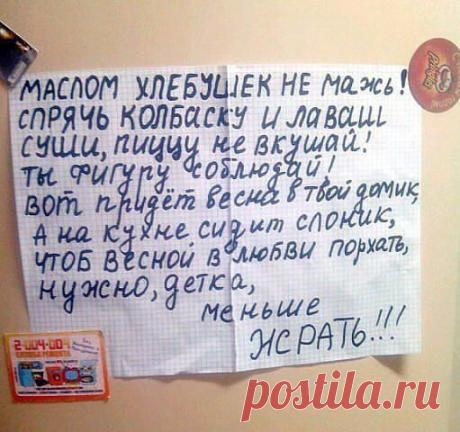 МАСЛОМ ХЛЕБУШЕК НЕ мажь!
СПРЯЧЬ КОЛБАСКУ И ЛАВАШ
СУШИ, ПИЦЦУ НЕ ВКУШАЙ!
ТЫ ФИГУРУ СОБЛЮДАЙ!
ВОТ придёт весна в твой домик,
А на кухне сидит слоник,
ЧТОБ ВЕСНОЙ В ЛЮБВИ ПОРХАТЬ,
НУЖНО, детка,
меньше
ЖРАТЬ!!!
2-004-004
СЛУЖБА РЕМОНТА
postila.ru